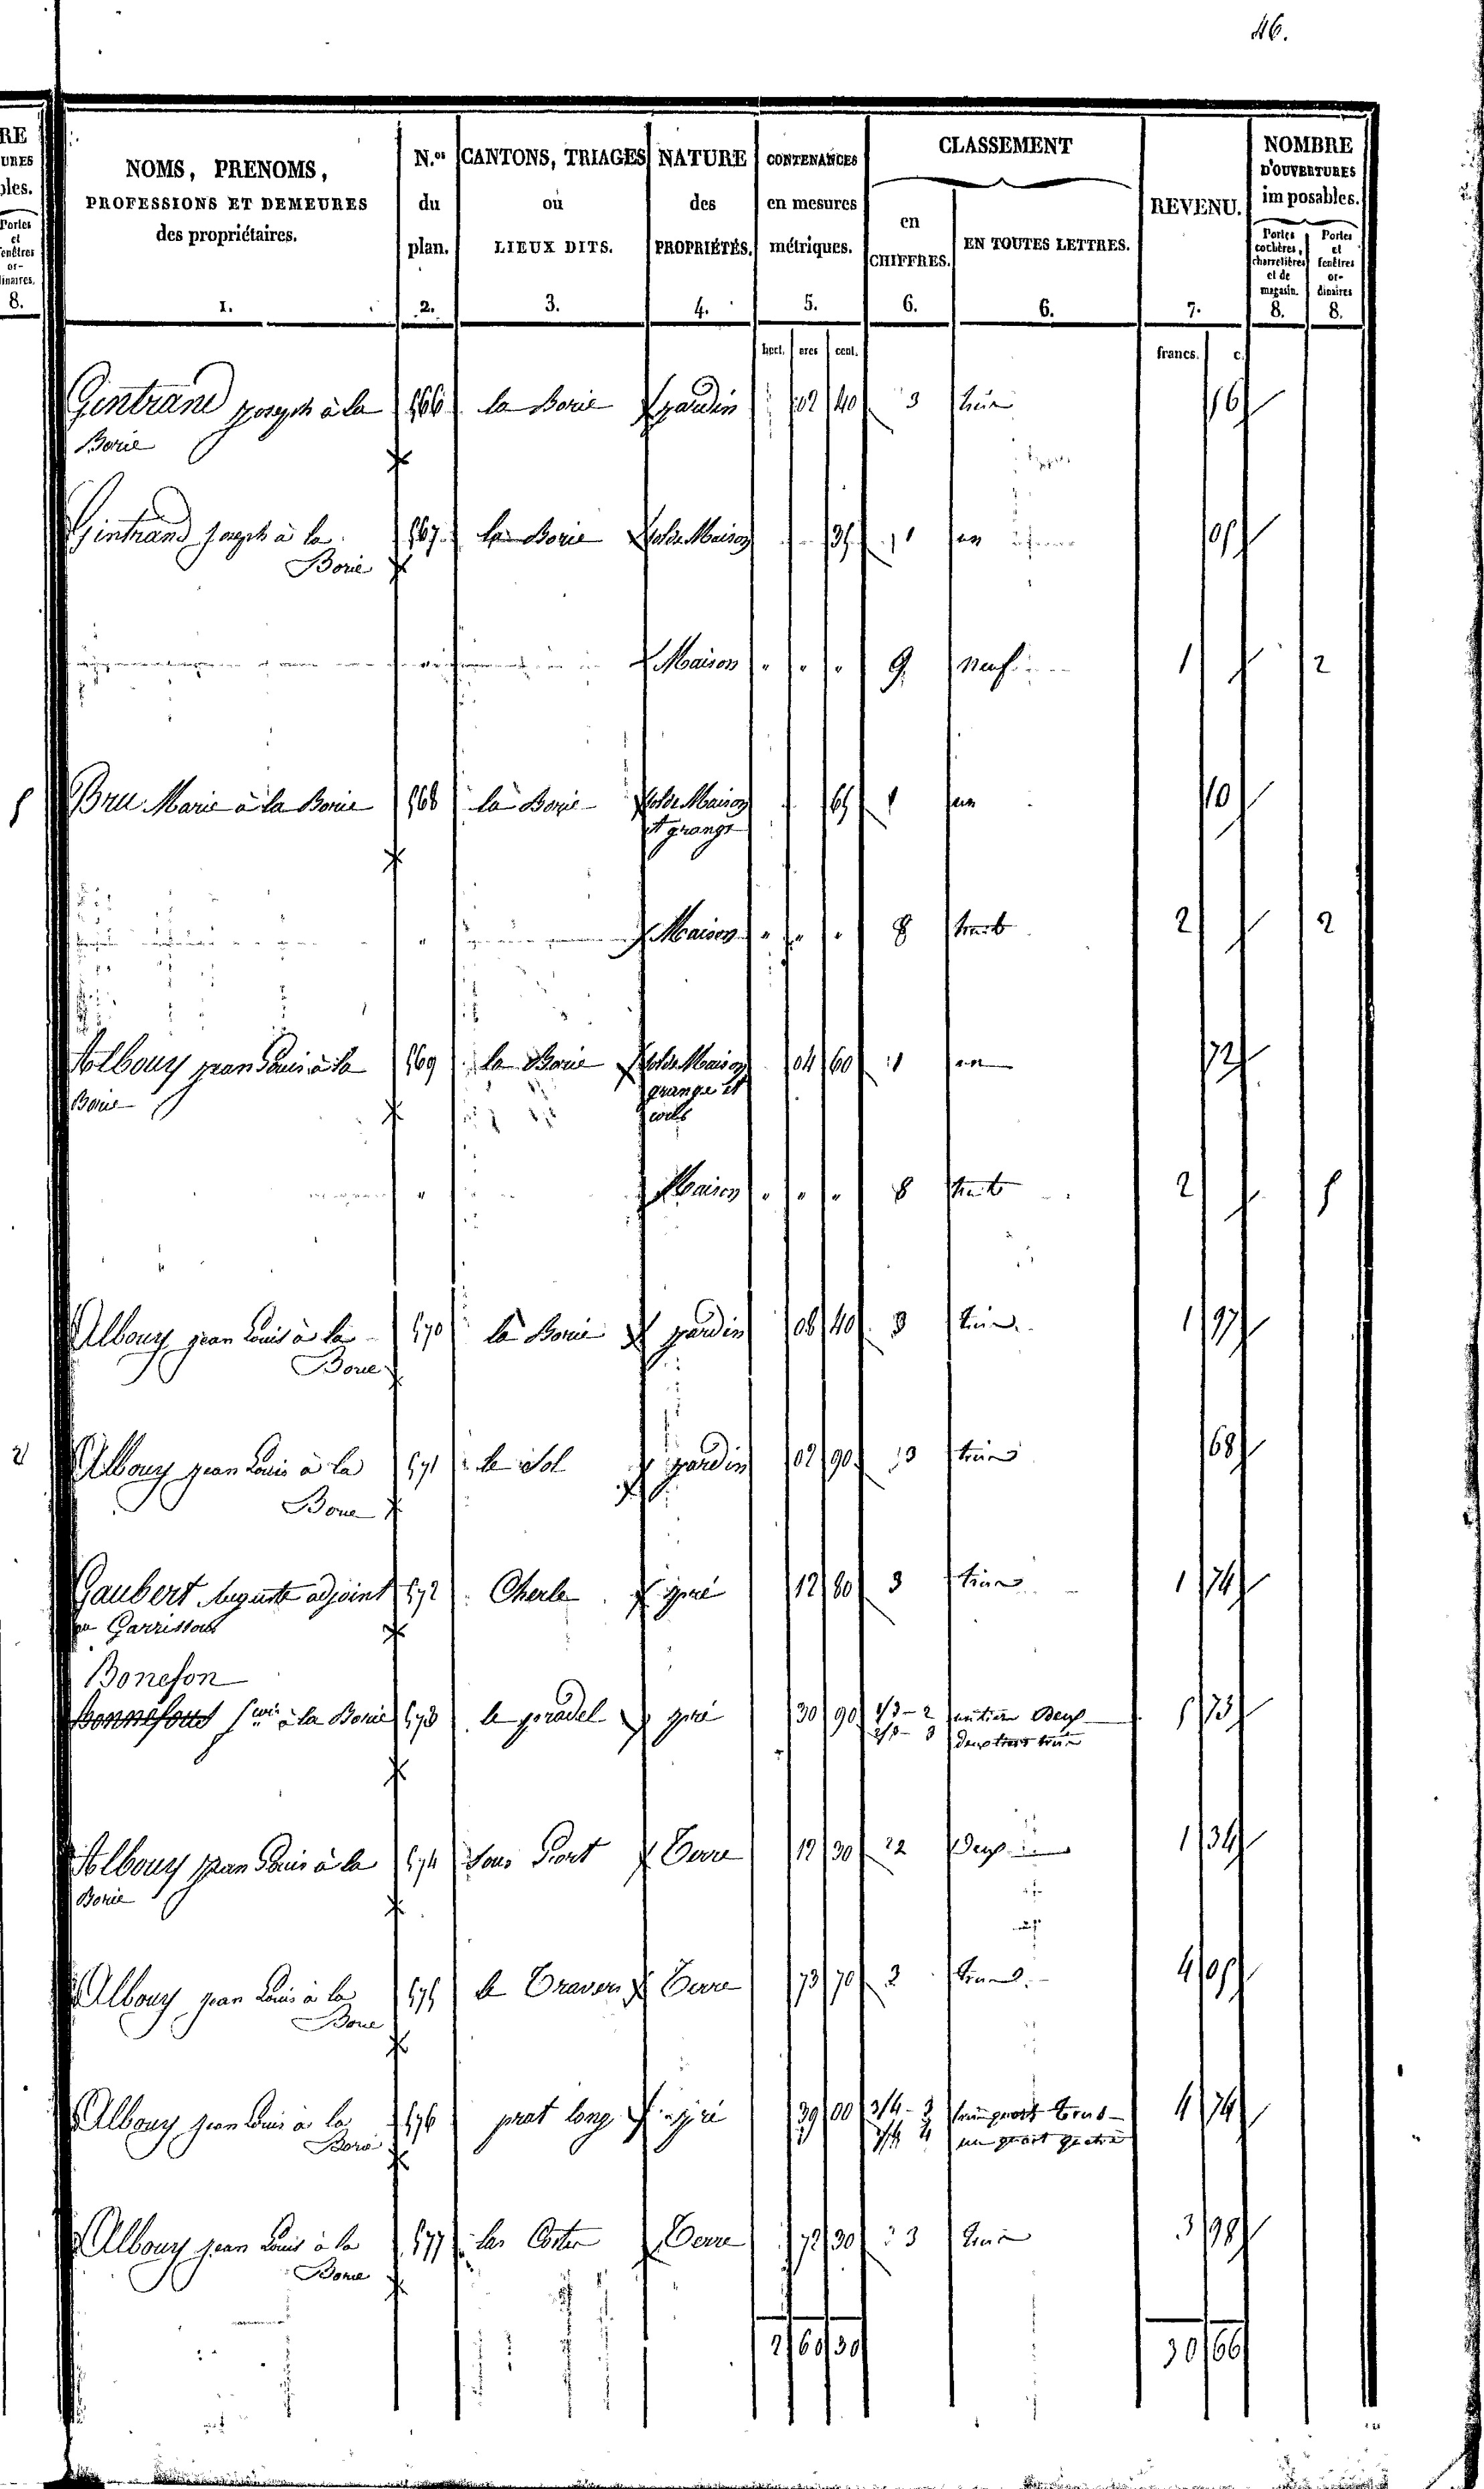 46.
RE
URES
bles.
Portes
et
fenêtres
or-
dinaires.
8.
NOMS, PRENOMS,
PROFESSIONS ET DEMEURES
des propriétaires.
1.
N.os
du
plan.
2.
CANTONS, TRIAGES
où
LIEUX DITS.
3.
NATURE
des
PROPRIÉTÉS.
4.
CONTENANCES
en mesures
métriques.
5.
CLASSEMENT
en
CHIFFRES.
6.
EN TOUTES LETTRES.
6.
REVENU.
7.
NOMBRE
D'OUVERTURES
imposables.
Portes
cochères,
charretières
et de
magasin.
8.
Portes
et
fenêtres
or-
dinaires
8.
hect. ares cent. francs. c.
Gintrand joseph à la 566 la Borie jardin 02 40 3 trois 56
Borie
Gintrand joseph à la 567 la Borie sol de Maison 35 1 un 05
Borie
Maison " " " 9 neuf 1 2
5 Bru Marie à la Borie 568 la Borie sol de Maison 65 1 un 10
et grange
" Maison " " " 8 huit 2 2
Albouy jean Louis à la 569 la Borie sol de Maison 04 60 1 un 72
Borie grange et
" Maison " " " 8 huit 2 5
Albouy jean Louis à la 570 la Borie jardin 08 40 3 trois 1 97
Borie
2 Albouy jean Louis à la 571 le Sol jardin 02 90 3 trois 68
Borie
Gaubert Auguste adjoint 572 Cherle pré 12 80 3 trois 1 74
au Garrissou
Boneson
Bonnefous à la Borie 573 le pradel pré 30 90 1/3 - 2 un tiers Deux 5 73
2/3 - 3 deux tiers trois
Albouy jean Louis à la 574 Sous Port Terre 12 30 2 Deux 1 34
Borie
Albouy jean Louis à la 575 le Travers Terre 73 70 3 trois 4 05
Borie
Albouy jean Louis à la 576 prat long pré 39 00 3/4 - 3 trois quart trois 4 74
Borie 1/4 4 un quart quatre
Albouy jean Louis à la 577 las Costes Terre 72 30 3 trois 3 98
Borie
2 60 30 30 66